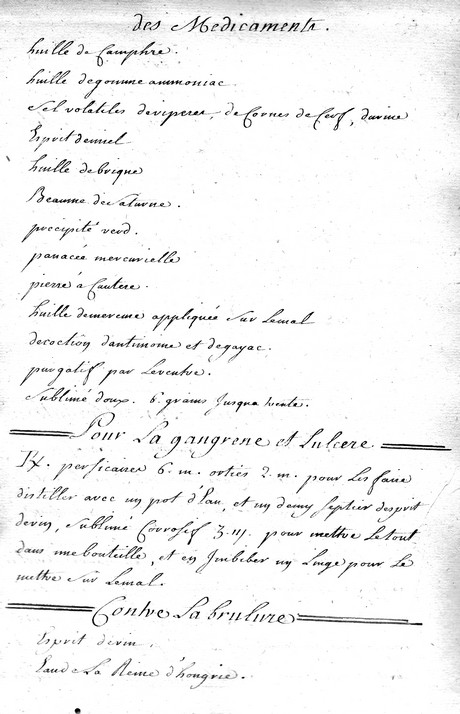 des Medicaments.
huille de Camphre.
huille degomme ammoniac
Sel volatiles deviperes, de Cornes de Cerf, durine
Esprit demiel
huille debrique
Beaume deSaturne.
precipité verd.
panacée mercurielle
pierre à Cautere.
huille demercure appliquée Sur Lemal
decoction dantimoine et degayac.
purgatif par Leventre.
Sublimé doux. 6 grains Jusqua trente.
Pour La gangrene et Lulcere
perficaires 6. m. orties 2. m. pour Les faire
distiller avec un pot d'Eau, et un demy Septier desprit
devin, Sublimé Corrosif 3. iij. pour mettre Le tout
dans unebouteille, et en Jmbiber un Linge pour Le
mettre Sur Lemal.
Contre La brulure
Esprit devin.
Eau de La Reine d'hongrie.